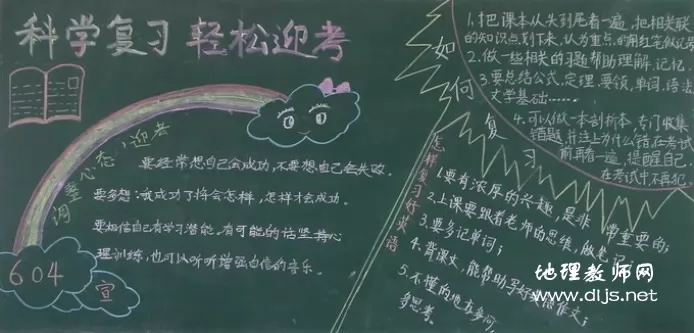 科学复习 轻松迎考
调整心态,迎考
要经常想自己会成功,不要想自己会失败。
要多想:我成功了将会怎样,怎样才会成功。
要相信自己有学习潜能,有可能的话坚持心
理训练,也可以听听增强自信的音乐。
604
宣
如何复习
1.把课本从头到尾看一遍,把相关联
的知识点划下来,认为重点的用红笔做记号
2.做一些相关的习题帮助理解、记忆。
3.要总结公式、定理、要领、单词、语法、
文学基础……
4.可以做一本剖析本,专门收集
错题,并注上为什么错,在考试
前再看一遍,提醒自己,
在考试中不再犯。
怎样复习好英语
1.要有浓厚的兴趣,是非常重要的;
2.上课要跟着老师的思维,做笔记;
3.要多记单词;
4.背课文,能帮助写好作文;
5.不懂的地方多问
多思考。
地理教师网
www.dljs.net